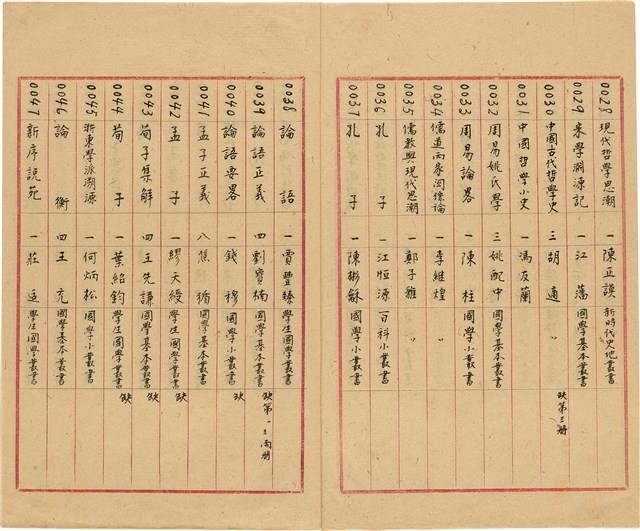 0028 現代哲學思潮 一 陳正謨 新時代史地叢書
0029 宋學淵源記 一 江藩 國學基本叢書
0030 中國古代哲學史 三 胡適 〃 缺第三册
0031 中國哲學小史 一 馮友蘭
0032 周易姚氏學 三 姚配中 國學基本叢書
0033 周易論畧 一 陳柱 國學小叢書
0034 儒道兩家関係論 一 李維煌 〃
0035 儒教與現代思潮 一 鄭子雅 〃
0036 孔子 一 江恒源 百科小叢書
0037 孔子 一 陳彬龢
0038 論語 一 賈豐臻 學生國學叢書
0039 論語正義 四 劉寳楠 國學基本叢書 缺第一二兩册
0040 論語要畧 一 錢穆 國學小叢書 缺
0041 孟子正義 八 焦循 國學基本叢書
0042 孟子 一 繆天綬 學生國學叢書 缺
0043 荀子集解 四 王先謙 國學基本叢書 缺
0044 荀子 一 葉紹鈞 學生國學叢書 缺
0045 浙東學派溯源 一 何炳松 國學小叢書
0046 論衡 四 王充 國學基本叢書
0047 新序説苑 一 莊适 學生國學叢書